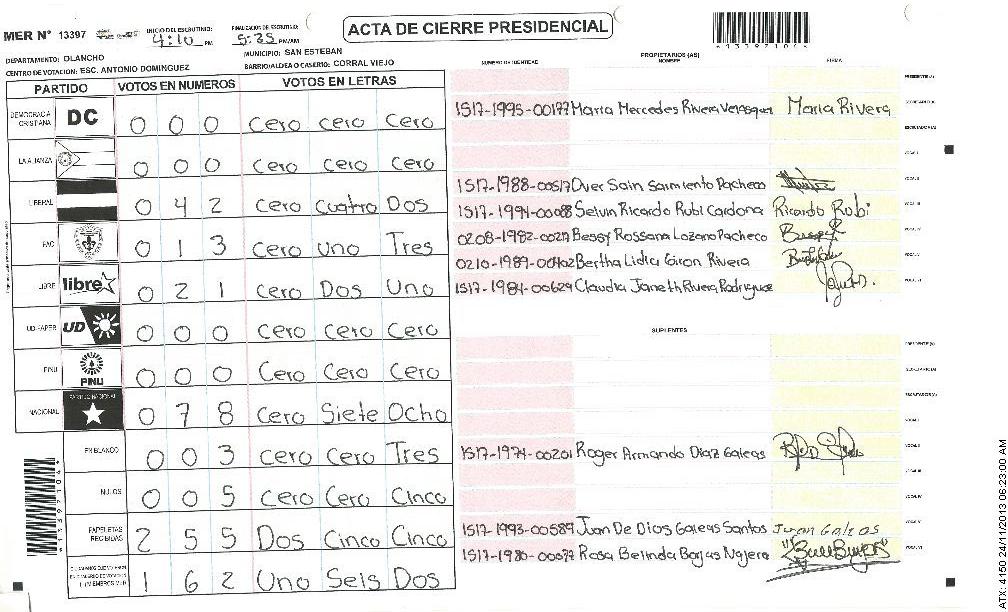 ACTA DE CIERRE PRESIDENCIAL
MER N° 13397
INICIO DEL ESCRUTINIO: 4:10 PM
FINALIZACION DE ESCRUTINIO: 5:35 PM/AM
*13397104*
DEPARTAMENTO: OLANCHO
MUNICIPIO: SAN ESTEBAN
CENTRO DE VOTACION: ESC. ANTONIO DOMINGUEZ
BARRIO/ALDEA O CASERIO: CORRAL VIEJO
PARTIDO VOTOS EN NUMEROS VOTOS EN LETRAS
DEMOCRACIA CRISTIANA DC 0 0 0 Cero Cero Cero
LA ALIANZA 0 0 0 Cero Cero Cero
LIBERAL 0 4 2 Cero Cuatro Dos
FAC 0 1 3 Cero Uno Tres
LIBRE libre 0 2 1 Cero Dos Uno
UD-FAPER UD 0 0 0 Cero Cero Cero
PINU PINU 0 0 0 Cero Cero Cero
NACIONAL PARTIDO NACIONAL 0 7 8 Cero Siete Ocho
EN BLANCO 0 0 3 Cero Cero Tres
NULOS 0 0 5 Cero Cero Cinco
PAPELETAS RECIBIDAS 2 5 5 Dos Cinco Cinco
1 6 2 Uno Seis Dos
*13397104*
NUMERO DE IDENTIDAD PROPIETARIOS (AS) NOMBRE FIRMA
PRESIDENTE (A)
1517-1995-00177 Maria Mercedes Rivera Velasquez Maria Rivera SECRETARIO (A)
ESCRUTADOR (A)
VOCAL I
1517-1988-00517 Over Sain Sarmiento Pacheco VOCAL II
1517-1994-00088 Selvin Ricardo Rubi Cardona Ricardo Rubi VOCAL III
0208-1982-00217 Bessy Rossana Lozano Pacheco VOCAL IV
0210-1989-00402 Bertha Lidia Giron Rivera VOCAL V
1517-1984-00629 Claudia Janeth Rivera Rodriguez VOCAL VI
SUPLENTES
PRESIDENTE (A)
SECRETARIO (A)
ESCRUTADOR (A)
VOCAL I
1517-1974-00201 Roger Armando Diaz Galeas VOCAL II
VOCAL III
VOCAL IV
1517-1993-00589 Juan De Dios Galeas Santos Juan Galeas VOCAL V
1517-1980-00077 Rosa Belinda Borjas Najera VOCAL VI
ATX: 4150 24/11/2013 06:23:00 AM